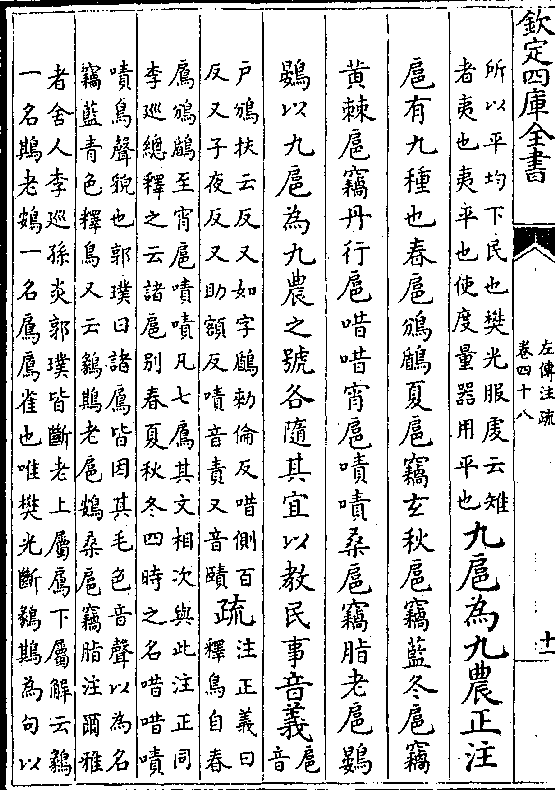 欽定四庫全書
左傳注疏
卷四十八
十一
所以平均下民也樊光服虔云雉
者夷也夷平也使度量器用平也
九扈為九農正注
扈有九種也春扈鳻鶞夏扈竊玄秋扈竊藍冬扈竊
黃棘扈竊丹行扈唶唶宵扈嘖嘖桑扈竊脂老扈鷃
鷃以九扈為九農之號各隨其宜以教民事音義
扈音
戶鳻扶云反又如字鶞勑倫反唶側百
反又子夜反又助額反嘖音責又音賾
疏
注正義曰
釋鳥自春
鳸鳻鶞至宵扈嘖嘖凡七鳸其文相次與此注正同
李廵總釋之云諸扈別春夏秋冬四時之名唶唶嘖
嘖鳥聲貌也郭璞曰諸鳸皆因其毛色音聲以為名
竊藍青色釋鳥又云鷚鷃老扈鷃桑扈竊脂注爾雅
者舍人李廵孫炎郭璞皆斷老上屬鳸下屬解云鷚
一名鷃老鷃一名鳸鳸雀也唯樊光斷鷚鷃為句以